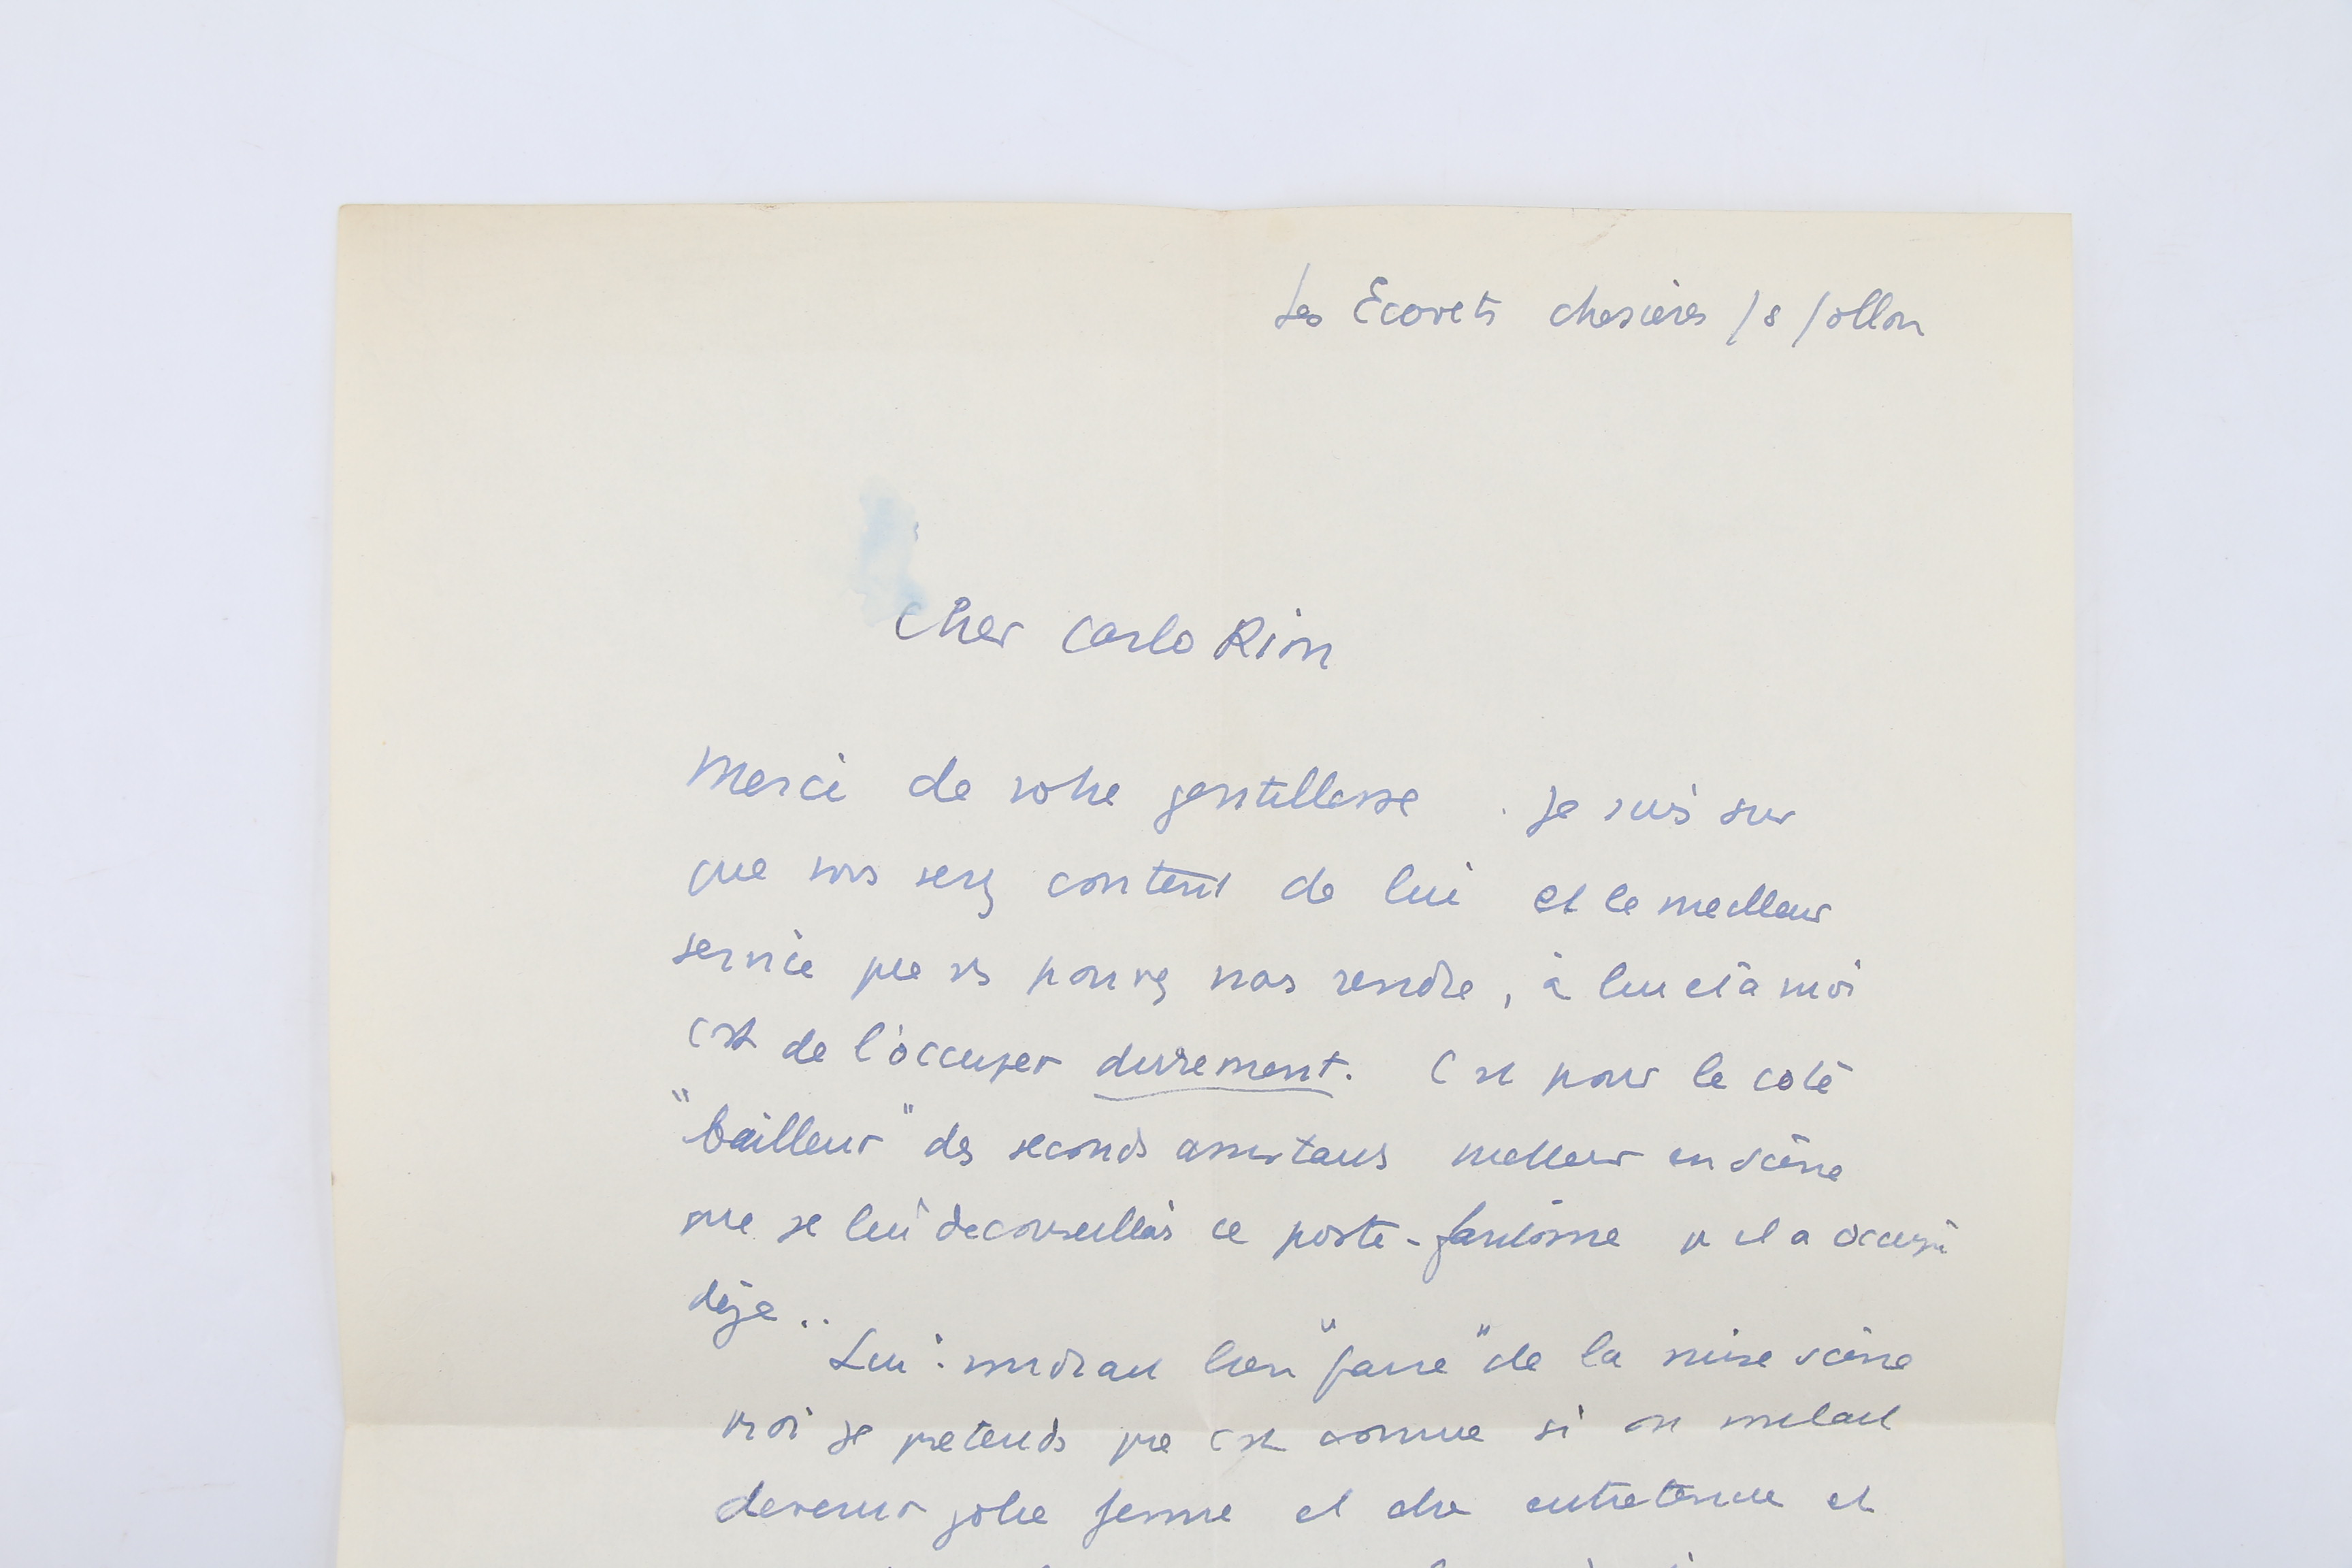 Les Ecovets chesières /s/ollon
Cher Carlo Rim
Merci de votre gentillesse . je suis sur
que vous serez content de lui et le meilleur
service que vs pouvez nous rendre, à lui et à moi
c'est de l'occuper durement. C'est pour le coté
"bailleur" des seconds assistants metteur en scène
que je lui deconseillais ce poste-fantôme qu'il a occupé
déja ..
Lui : voudrait bien "faire" de la mise scène
moi je pretends que c'est comme si on voulait
devenir jolie femme et etre entretenue et